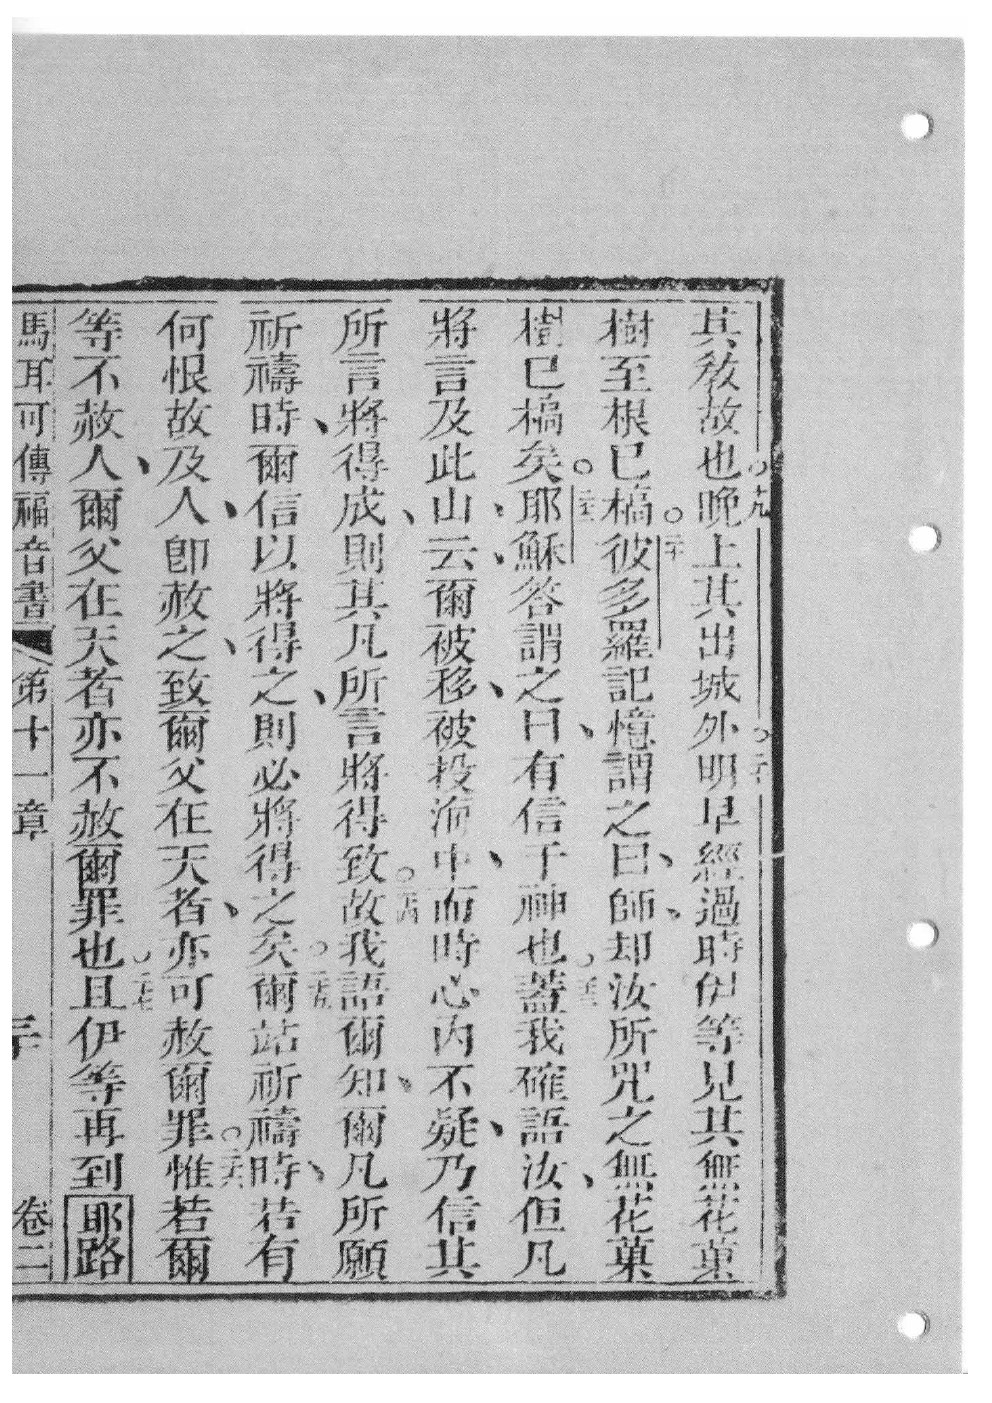 其教故也○十九晚上其出城外○二十明早經過時伊等見其無花菓
樹至根已槁○二十一彼多羅記憶謂之曰、師、却汝所咒之無花菓
樹已槁矣○二十二耶穌答謂之曰、有信于神也○二十三蓋我確語汝、但凡
將言及此山、云、爾被移、被投海中、而時心內不疑、乃信其
所言將得成、則其凡所言將得致○二十四故我語爾知、爾凡所願
祈禱時、爾信以將得之、則必將得之矣○二十五爾站祈禱時、若有
何恨故及人、卽赦之、致爾父在天者、亦可赦爾罪○二十六惟若爾
等不赦人、爾父在天者亦不赦爾罪也○二十七且伊等再到耶路
馬耳可傳福音書 第十一章 卷二